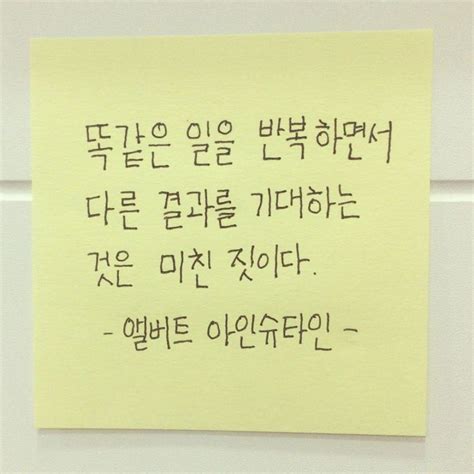 똑같은 일을 반복하면서
다른 결과를 기대하는
것은 미친 짓이다.
- 앨버트 아인슈타인 -